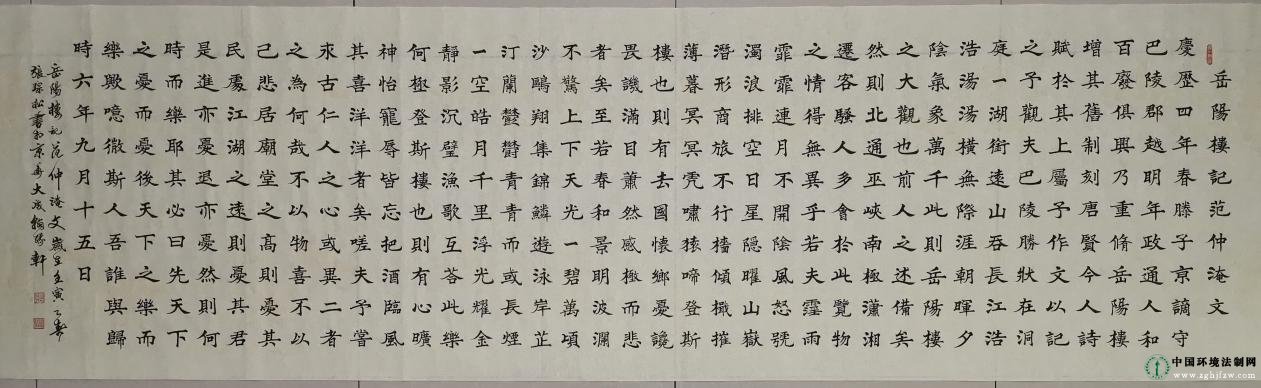 岳陽樓記范仲淹文
慶歷四年春滕子京謫守
巴陵郡越明年政通人和
百廢俱興乃重脩岳陽樓
增其舊制刻唐賢今人詩
賦於其上屬予作文以記
之予觀夫巴陵勝狀在洞
庭一湖銜遠山吞長江浩
浩湯湯橫無際涯朝暉夕
陰氣象萬千此則岳陽樓
之大觀也前人之述備矣
然則北通巫峽南極瀟湘
遷客騷人多會於此覽物
之情得無異乎若夫霪雨
霏霏連月不開陰風怒號
濁浪排空日星隱曜山嶽
潛形商旅不行檣傾檝摧
薄暮冥冥虎嘯猿啼登斯
樓也則有去國懷鄉憂讒
畏譏滿目蕭然感極而悲
者矣至若春和景明波瀾
不驚上下天光一碧萬頃
沙鷗翔集錦鱗遊泳岸芷
汀蘭鬱鬱青青而或長煙
一空皓月千里浮光耀金
靜影沉璧漁歌互荅此樂
何極登斯樓也則有心曠
神怡寵辱皆忘把酒臨風
其喜洋洋者矣嗟夫予嘗
求古仁人之心或異二者
之為何哉不以物喜不以
己悲居廟堂之高則憂其
民處江湖之遠則憂其君
是進亦憂退亦憂然則何
時而樂耶其必曰先天下
之憂而憂後天下之樂而
樂歟噫微斯人吾誰與歸
時六年九月十五日
岳陽樓記范仲淹文歲在壬寅之
張松書於京華大成軒
中国环境法制网
www.zghjfzw.com